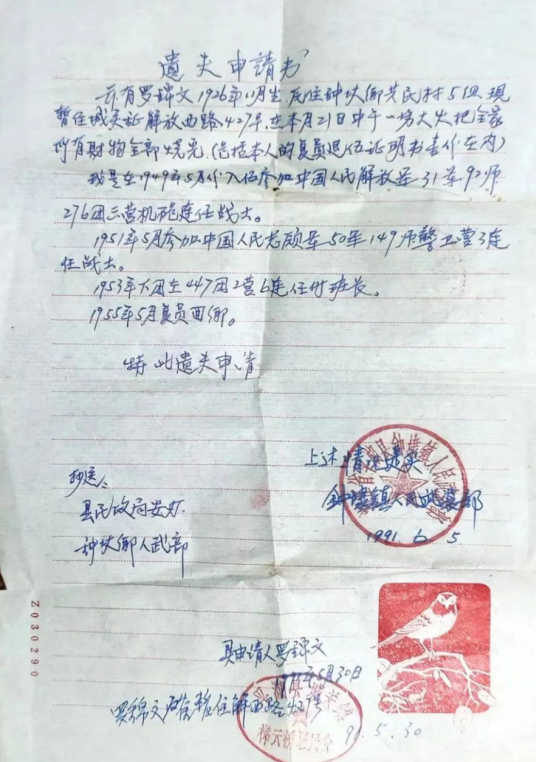 遗失申請书
兹有罗锦文1926年11月生 反住钟坎鄉共民村5组 现
暂住城关证解放西路427号,在本月21日中午一场大火把全家
所有财物全部烧光.(包括本人的复员退伍证明书壹份在内)
我是在1949年5月份入伍参加中国人民解放军31军92师
276团三营机砲連任战士。
1951年5月参加中国人民志願军50军149师警卫营3连
任战士。
1953年下团在447团2营6连任付班长。
1955年5月复员回鄉。
特此遗失申请
上述情况属实
鈡墚镇人民武装部
1991.6.5
抄送:
县民政局安办
钟坎鄉人武部
Z030290
具申请人罗錦文
年5月30日
罗錦文 暂住解西路427号
91.5.30